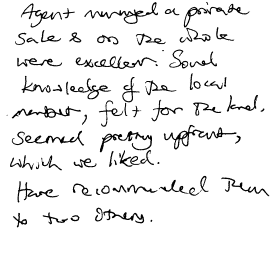 Agent managed a private
sale & on the whole
were excellent. Sound
knowledge of the local
market, felt for the kind.
Seemed pretty upfront,
which we liked.
Have recommended them
to two others.